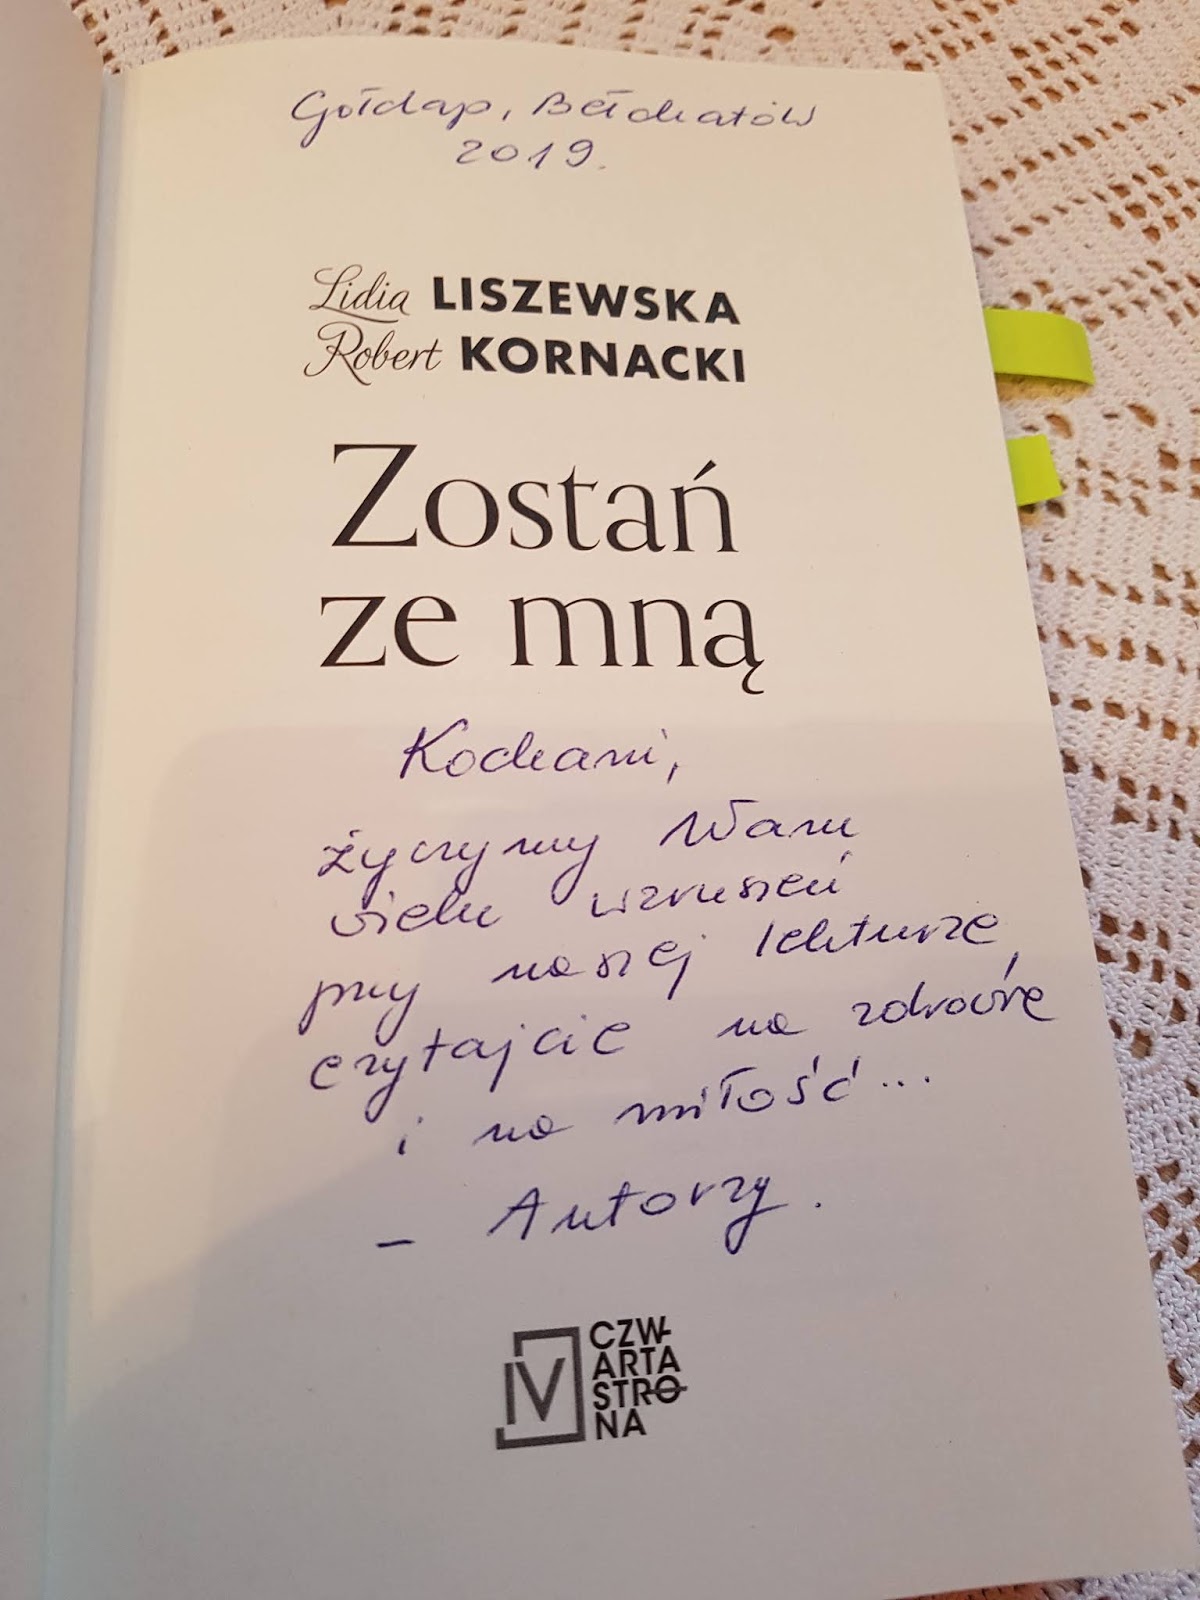 Gołdap, Bełchatów
2019.
Lidia LISZEWSKA
Robert KORNACKI
Zostań
ze mną
Kochani,
życzymy Wam
wielu wzruszeń
przy naszej lekturze,
czytajcie na zdrowie
i na miłość...
– Autorzy.
IV
CZW
ARTA
STRO
NA